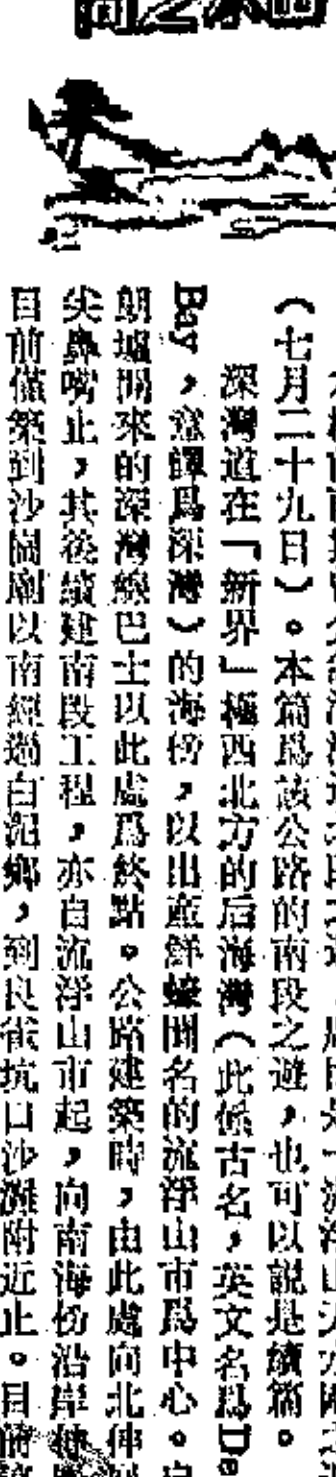 間之水山
（七月二十九日）。本篇爲該公路的南段之遊，也可以說是續篇。
深灣道在「新界」極西北方的后海灣（此係古名，英文名爲De
Bay，意譯爲深灣）的海傍，以出產鮮蠔聞名的流浮山市爲中心。
朗墟開來的深灣線巴士以此處爲終點。公路建築時，由此處向北伸
尖鼻嘴止，其後續建南段工程，亦自流浮山市起，向南海傍沿岸
目前僅築到沙岡廟以南經過白泥鄉，到良雀坑口沙灘附近止。目前